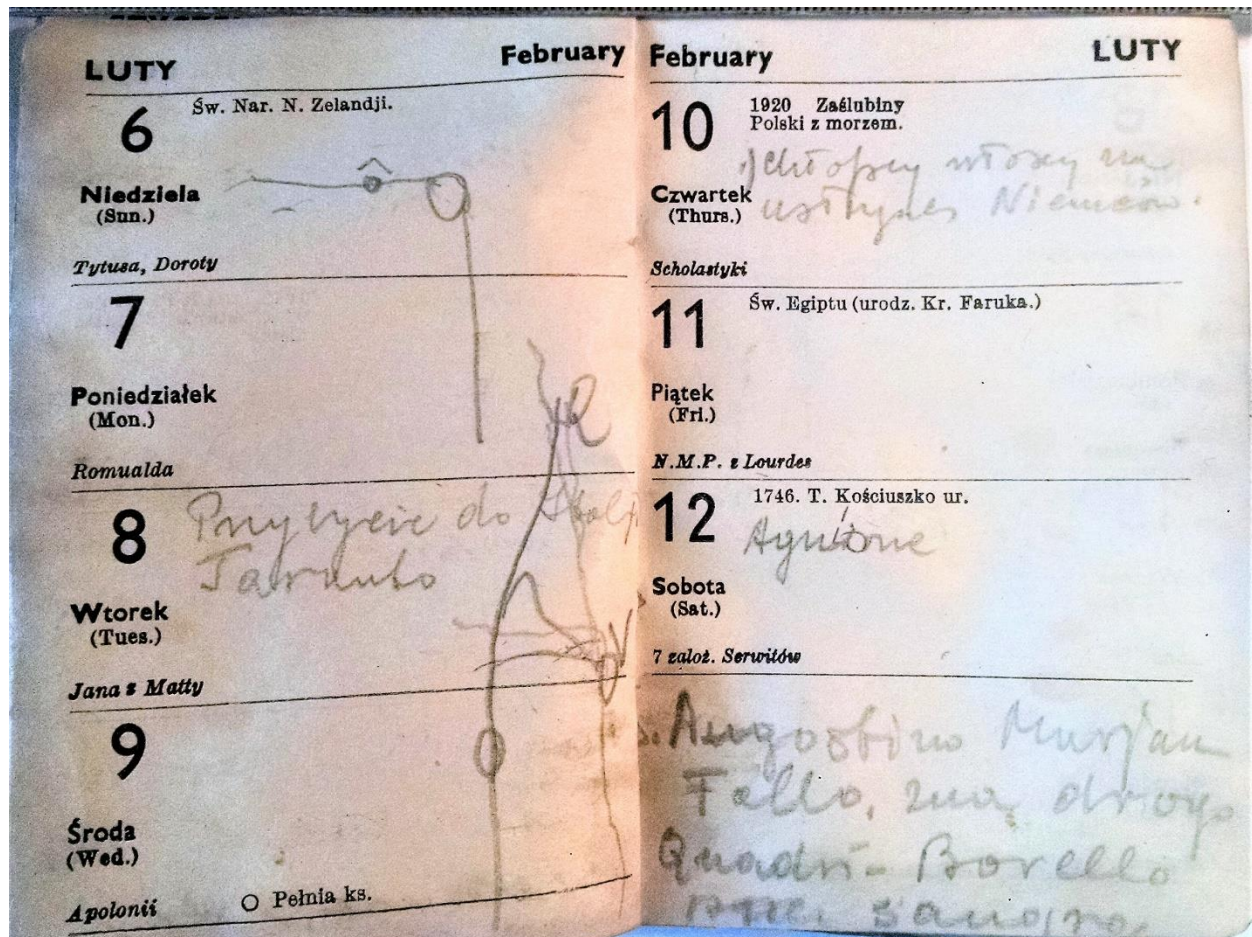 LUTY February
6 Św. Nar. N. Zelandji.
Niedziela
(Sun.)
Tytusa, Doroty
7
Poniedziałek
(Mon.)
Romualda
8 Przybycie do
Taranto
Wtorek
(Tues.)
Jana z Matty
9
Środa
(Wed.)
Apolonii O Pełnia ks.
February LUTY
10 1920 Zaślubiny
Polski z morzem.
chłopcy włoscy na
Czwartek
(Thurs.) Niemców.
Scholastyki
11 Św. Egiptu (urodz. Kr. Faruka.)
Piątek
(Fri.)
N.M.P. z Lourdes
12 1746. T. Kościuszko ur.
Agnone
Sobota
(Sat.)
7 założ. Serwitów
Augostino Murjan
Fello, zna drogę
Quadri - Borello